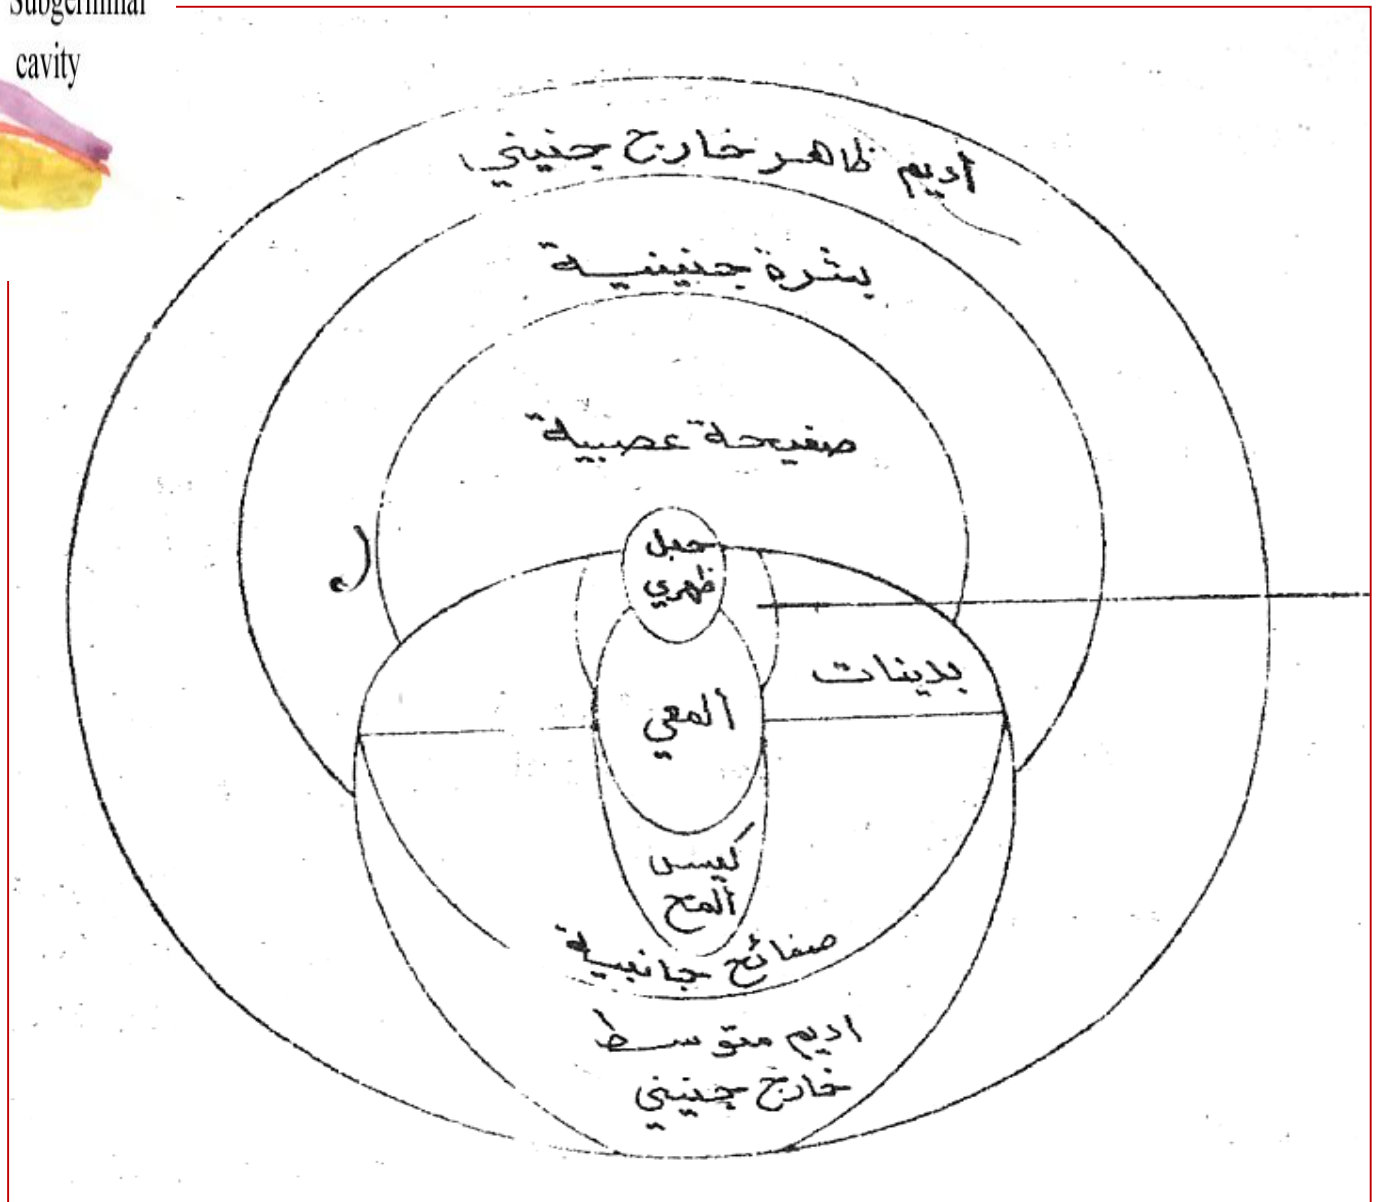 Subgerminal
cavity
أديم ظاهر خارج جنيني
بشرة جنينية
صفيحة عصبية
حبل
ظهري
بدينات
ألمعي
كيس
ألمح
صفائح جانبية
اديم متوسط
خارج جنيني